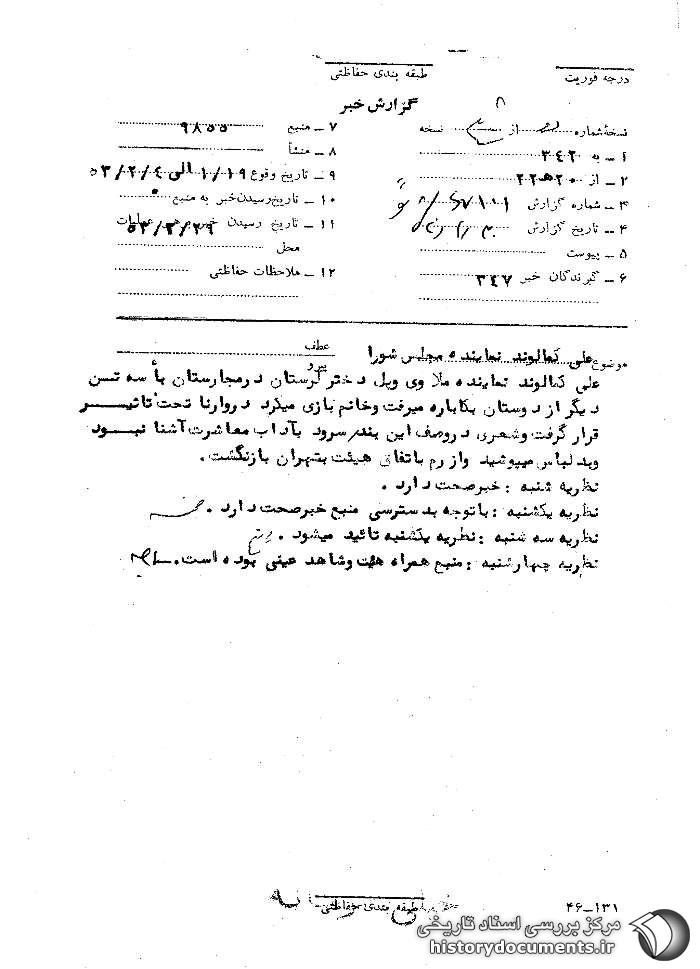 طبقه بندی حفاظتی
درجه فوریت
گزارش خبر
نسخهٔ شماره از نسخه
۱ـ به ۳۴۲
۲ـ از ۲۰ هـ ۲۲
۳ـ شماره گزارش
۴ـ تاریخ گزارش
۵ـ پیوست
۶ـ گیرندگان خبر ۳۴۷
۷ـ منبع ۹۸۵۵
۸ـ منشأ
۹ـ تاریخ وقوع ۱/۱۹ الی ۵۳/۲/۴
۱۰ـ تاریخ رسیدن خبر به منبع
۱۱ـ تاریخ رسیدن خبر به رهبر عملیات
محل ۵۳/۳/۲۹
۱۲ـ ملاحظات حفاظتی
موضوع علی کمالوند نماینده مجلس شورا
عطف
پیرو
علی کمالوند نماینده ملاوی وپل دختر لرستان درمجارستان با سه تسن
دیگر از دوستان بکاباره میرفت وخانم بازی میکرد دروارنا تحت تاثیر
قرار گرفت وشعری دروصف این بندر سرود بآداب معاشرت آشنا نبود
وبد لباس میپوشید وازرم باتفاق هیئت بتهران بازنگشت.
نظریه شنبه : خبرصحت دارد .
نظریه یکشنبه : باتوجه بدسترسی منبع خبرصحت دارد .
نظریه سه شنبه : نظریه یکشنبه تائید میشود .
نظریه چهارشنبه : منبع همراه هیئت وشاهد عینی بوده است.
طبقه بندی حفاظتی
۴۶-۱۳۱
مرکز بررسی اسناد تاریخی
historydocuments.ir